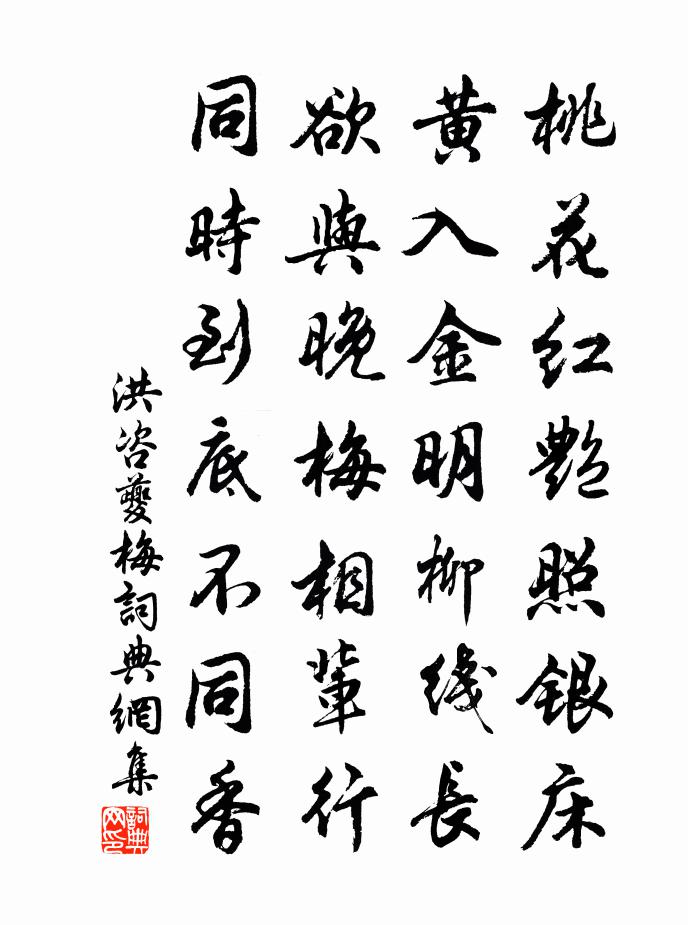 桃花红艷照银床
黄入金明柳线長
欲與晚梅相輩行
同時到底不同香
洪咨夔梅詞典網集
詞典网印